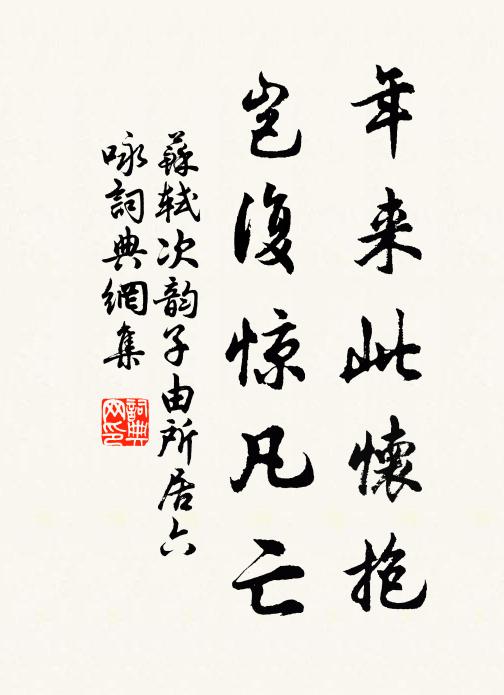 年来此懷抱
岂復惊凡亡
蘇轼次韵子由所居六
咏詞典網集
詞典
网印